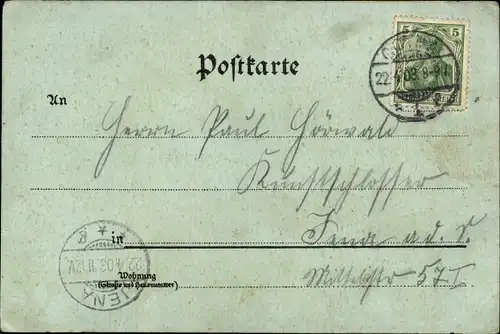 5 5
22.4.03. 8-9
Postkarte
An
Herrn Paul Hörwald
Kunstschlosser
in Jena a. d. S.
Wohnung
(Straße und Hausnummer)
Mittelstr 57 I.
JENA
22.4.03. 11-12V.